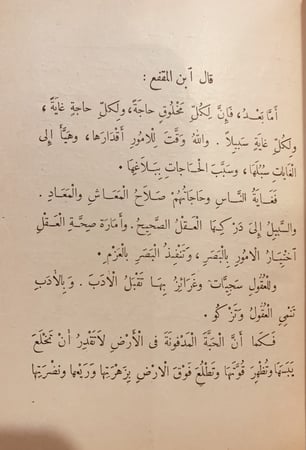 قال ٱبن المقفع :
أمَّا بَعْدُ، فَإِنَّ لِكُلِّ مَخْلُوقٍ حَاجَةً، ولِكلِّ حاجةٍ غايَةً،
ولِكلِّ غايةٍ سَبِيلاً . واللهُ وَقَّتَ لِلأُمورِ أَقْدَارَها، وهَيَّأَ إِلى
الغَاياتِ سُبُلَهَا، وسَبَّبَ الحَاجَاتِ بِبَلاَغِهَا .
فَغَايَةُ النَّاسِ وحَاجَاتُهُمْ صَلاَحُ المَعَاشِ والمَعَادِ .
والسَّبِيلُ إِلى دَرَكِهَا العَقْلُ الصَّحِيحُ . وأَمَارَةُ صِحَّةِ العَقْلِ
ٱخْتِيَارُ الاُمُورِ بِالْبَصَرِ، وتَنْفِيذُ البَصَرِ بِالْعَزْمِ .
ولِلْعُقُولِ سَجِيَّاتٌ وغَرَائِزُ بِهَا تَقْبَلُ الأدَبَ . وَبِالأَدَبِ
تَنْمِي العُقُولُ وتَزْكُو .
فَكَمَا أَنَّ الْحَبَّةَ المَدْفُونَةَ فى الْأَرْضِ لاَتَقْدِرُ أنْ تَخْلَعَ
يَبَسَهَا وتُظْهِرَ قُوَّتَهَا وتَطْلُعَ فَوْقَ الأرْضِ بِزَهْرَتِهَا ورَيْعِهَا ونَضْرَتِهَا